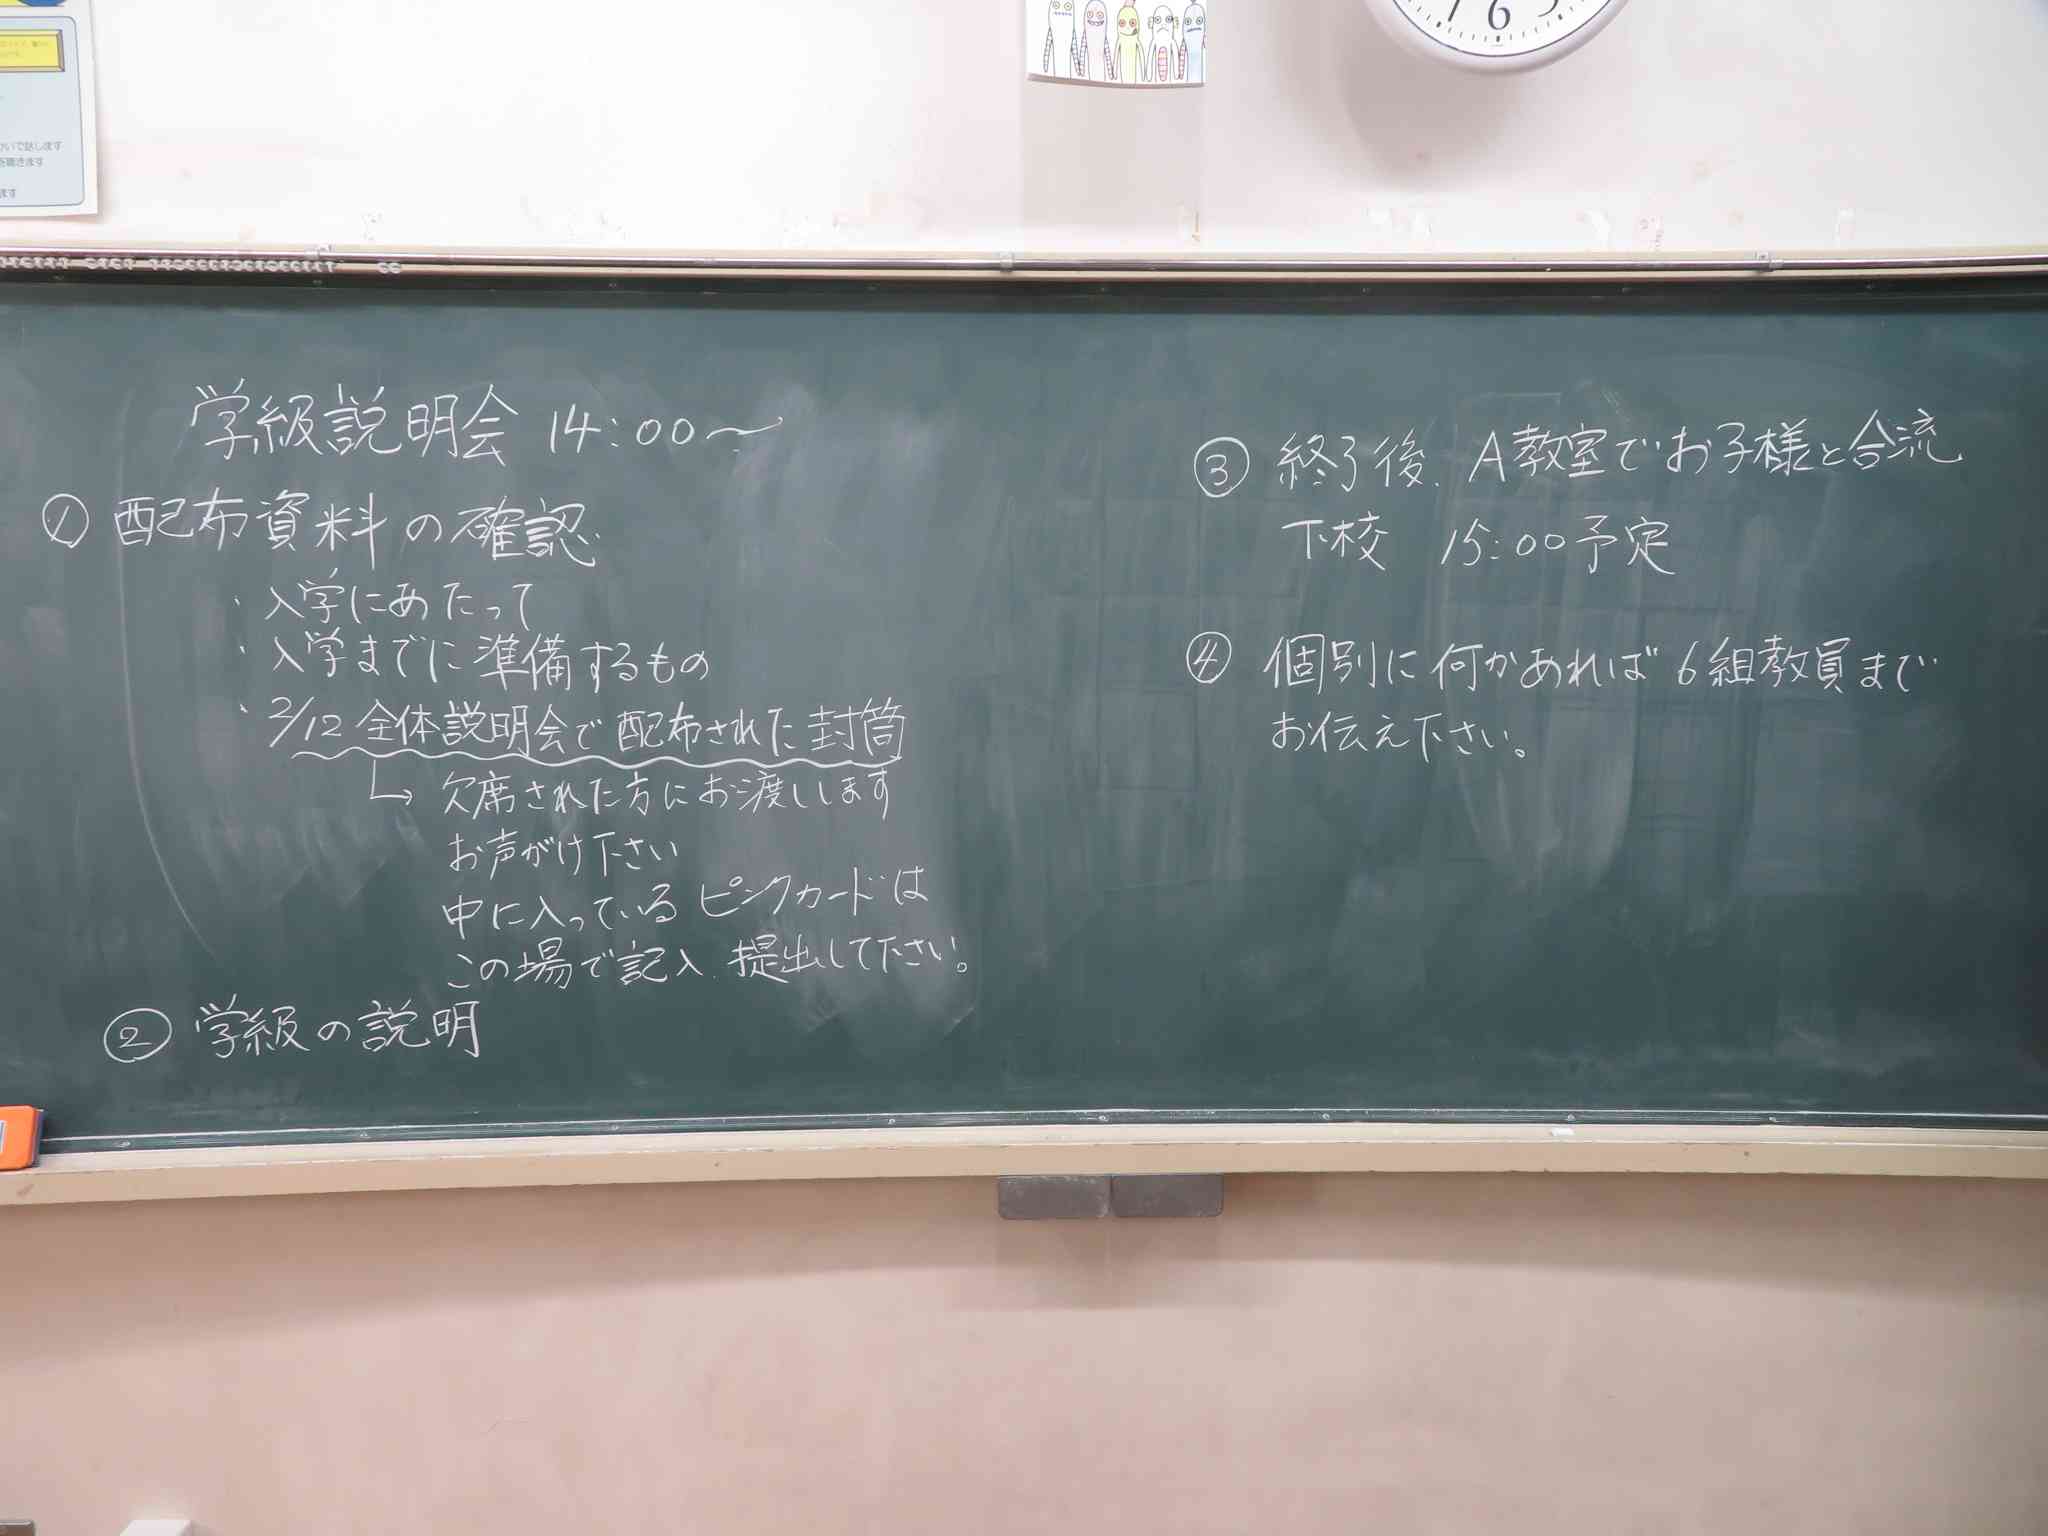 いで話します
を聴きます
ます
6
学級説明会 14:00～
① 配布資料の確認
・入学にあたって
・入学までに準備するもの
・2/12 全体説明会で配布された封筒
↳ 欠席された方にお渡しします
お声がけ下さい
中に入っているピンクカードは
この場で記入、提出して下さい。
② 学級の説明
③ 終了後、A教室でお子様と合流
下校 15:00予定
④ 個別に何かあれば6組教員まで
お伝え下さい。